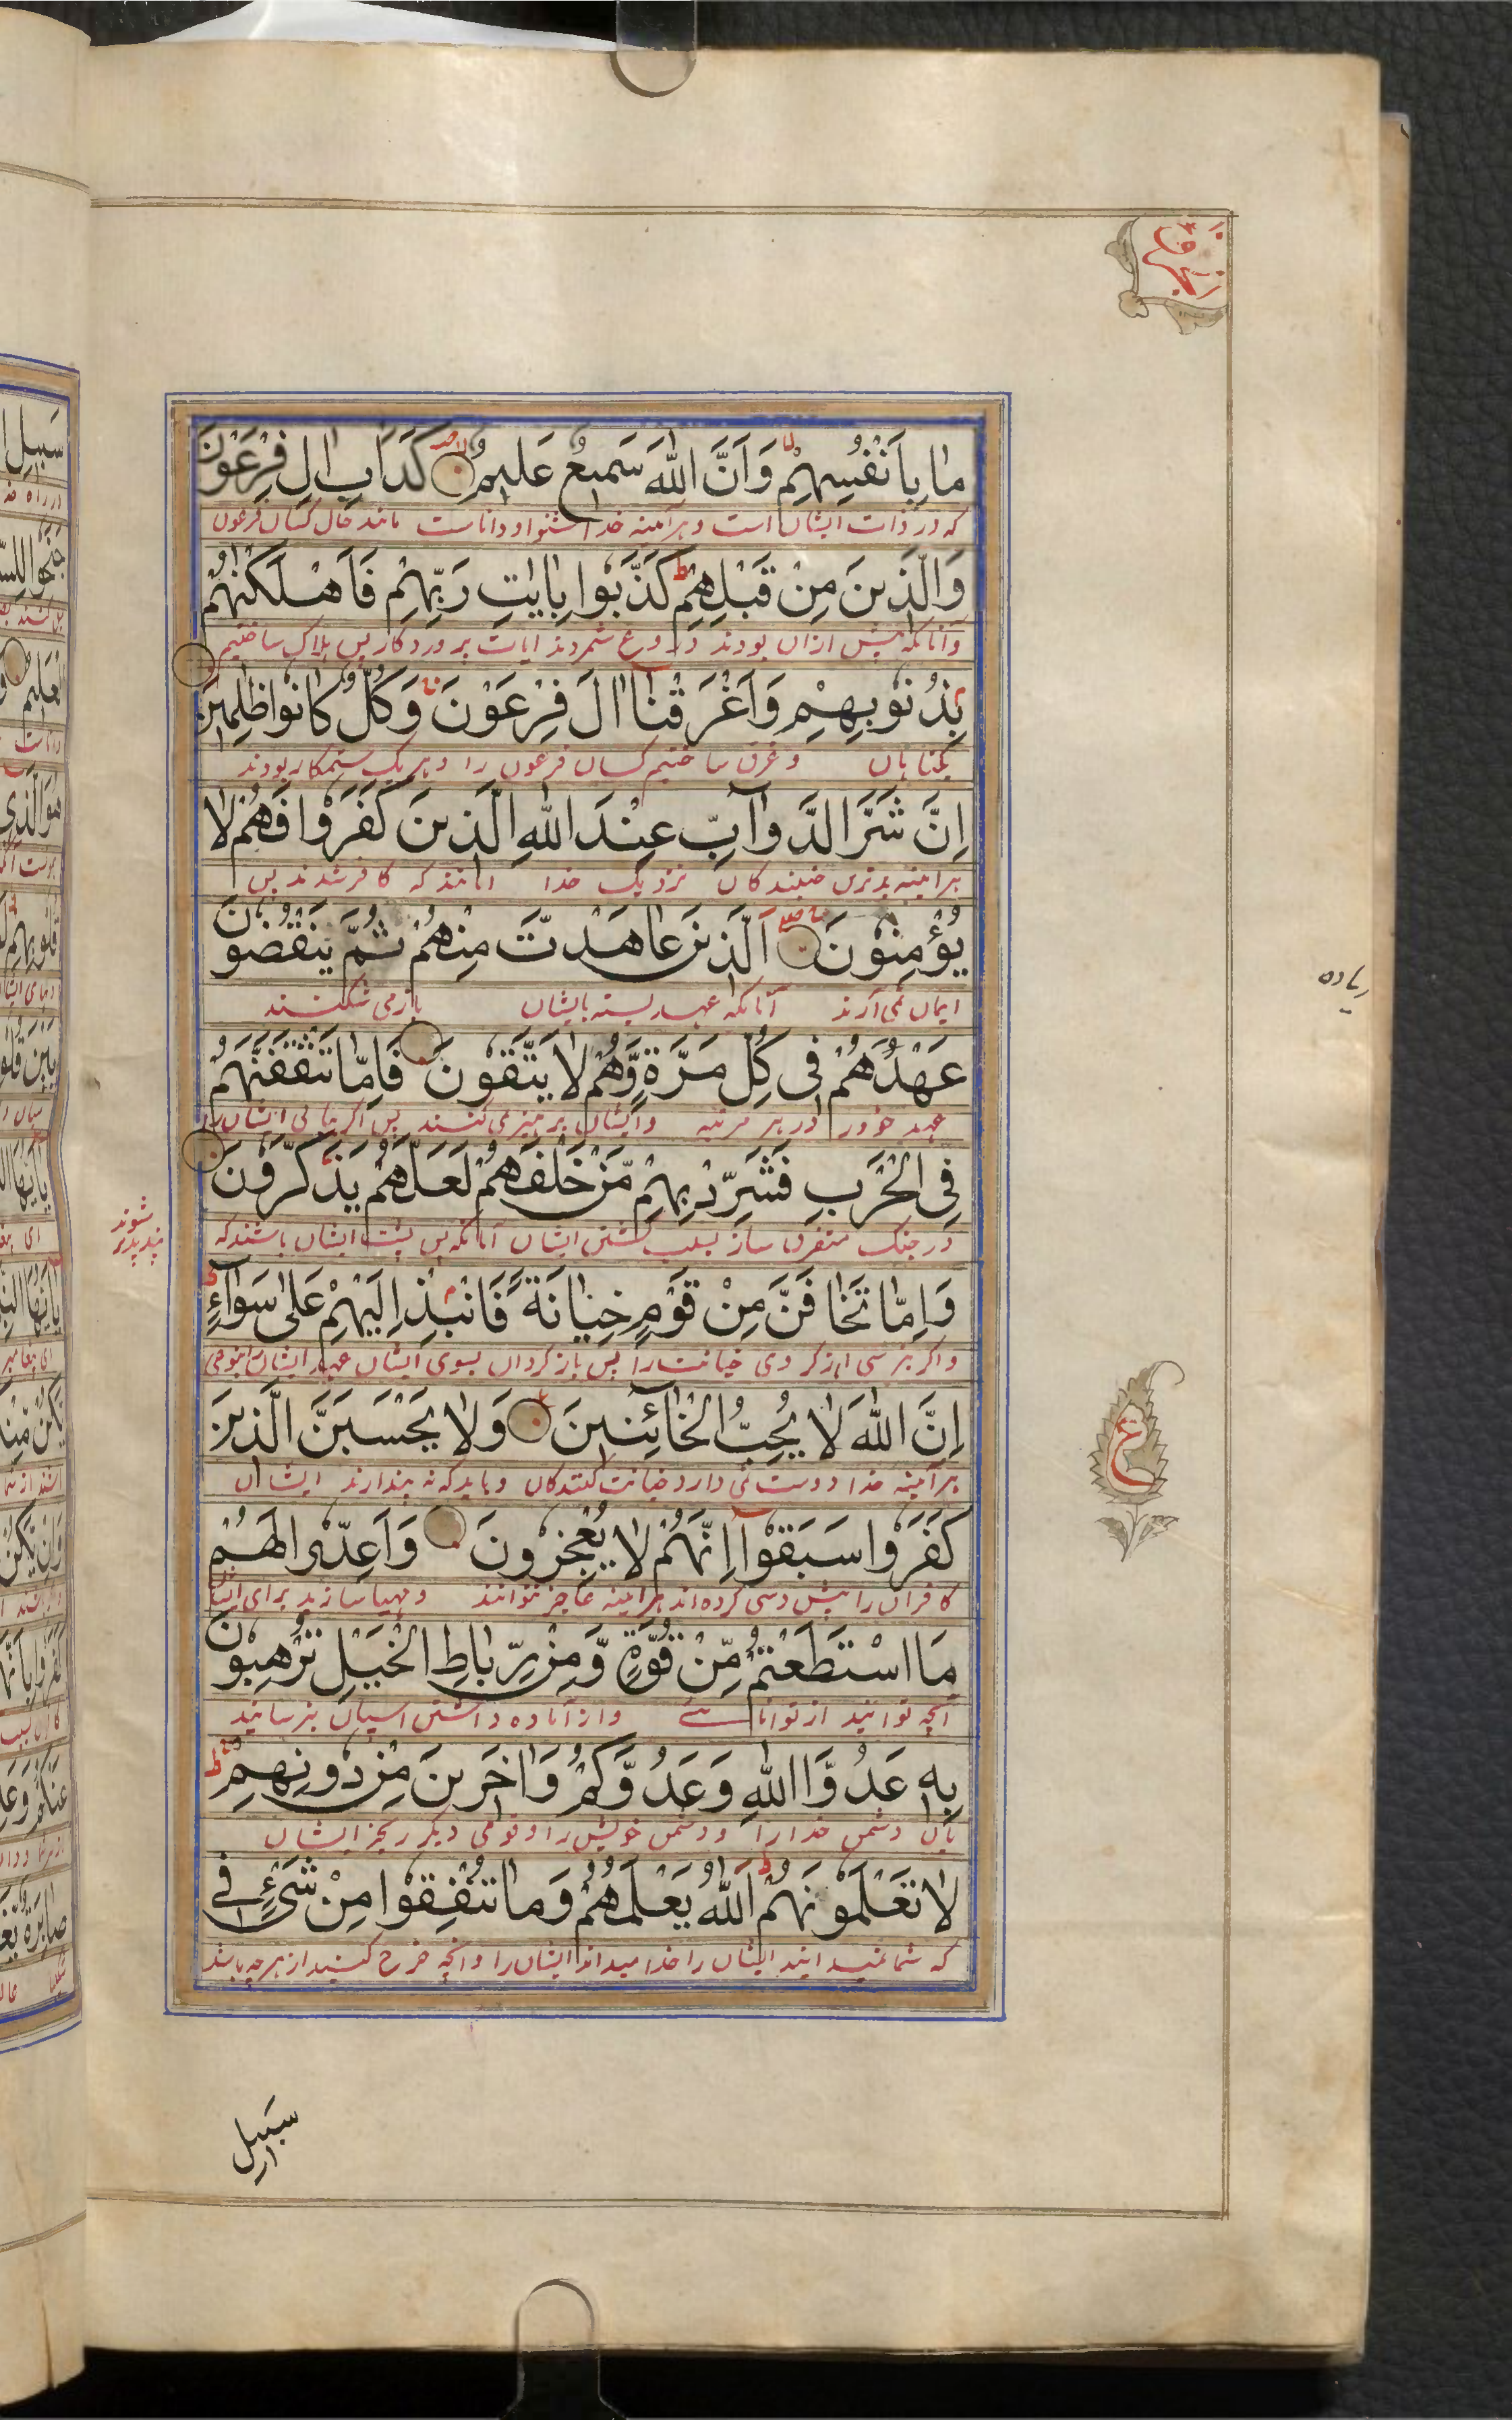 ما بِاَنْفُسِهِمْ وَاَنَّ اللّٰهَ سَمیعٌ عَلیمٌ كَدَاْبِ اٰلِ فِرْعَوْنَ
که در ذات ایشان است و هرآمینه خدا شنوا و داناست مانند حال کسان فرعون
وَالَّذینَ مِنْ قَبْلِهِمْ كَذَّبُوا بِاٰیٰتِ رَبِّهِمْ فَاَهْلَكْنٰهُمْ
و آنانکه پیش ازان بودند دروغ شمردند ایات پروردکار پس هلاک ساختیم
بِذُنُوبِهِمْ وَاَغْرَقْنٰا اٰلَ فِرْعَوْنَ وَكُلٌّ كٰانُوا ظٰلِمینَ
بکناهان و غرق ساختیم کسان فرعون را و هریک ستمکار بودند
اِنَّ شَرَّ الدَّوٰآبِّ عِنْدَ اللّٰهِ الَّذینَ كَفَرُوا فَهُمْ لٰا
هرامینه بدترین جنبندکان نزدیک خدا انانند که کافر شدند پس
یُؤْمِنُونَ اَلَّذینَ عٰاهَدْتَ مِنْهُمْ ثُمَّ یَنْقُضُونَ
ایمان نمی آرند آنانکه عهد بسته بایشان باز می شکنند
عَهْدَهُمْ فی كُلِّ مَرَّةٍ وَّهُمْ لٰا یَتَّقُونَ فَاِمّٰا تَثْقَفَنَّهُمْ
عهد خود را در هر مرتبه و ایشان پرهیز نمی کنند پس اکر بیابی ایشان را
فِی الْحَرْبِ فَشَرِّدْ بِهِمْ مَّنْ خَلْفَهُمْ لَعَلَّهُمْ یَذَّكَّرُونَ
در جنک متفرق ساز بسبب کشتن ایشان آنانکه پس پشت ایشان باشند که
پند پذیر
شوند
وَاِمّٰا تَخٰافَنَّ مِنْ قَوْمٍ خِیٰانَةً فَانْبِذْ اِلَیْهِمْ عَلٰی سَوٰآءٍ
و اکر بترسی از کروهی خیانت را پس باز کردان بسوی ایشان عهد ایشان
اِنَّ اللّٰهَ لٰا یُحِبُّ الْخٰآئِنینَ وَلٰا یَحْسَبَنَّ الَّذینَ
هرآمینه خدا دوست نمی دارد خیانت کنندکان و باید که نه پندارند ایشان
كَفَرُوا سَبَقُوٓا اِنَّهُمْ لٰا یُعْجِزُونَ وَاَعِدُّوا لَهُمْ
کافران را پیش دستی کرده اند هرامینه عاجز نتوانند و مهیا سازید برای ایشان
مَا اسْتَطَعْتُمْ مِّنْ قُوَّةٍ وَّمِنْ رِّبٰاطِ الْخَیْلِ تُرْهِبُونَ
آنچه توانید از توانائے و از آماده داشتن اسپان بترسانید
بِه عَدُوَّ اللّٰهِ وَعَدُوَّكُمْ وَاٰخَرینَ مِنْ دُونِهِمْ
بان دشمن خدا را و دشمن خویش را و قومی دیکر بجز ایشان
لٰا تَعْلَمُونَهُمْ اَللّٰهُ یَعْلَمُهُمْ وَمٰا تُنْفِقُوا مِنْ شَیْءٍ فی
که شما نمیدانید ایشان را خدا میداند ایشان را و انچه خرج کنید از هرچه باشد
سَبیلِ
ع